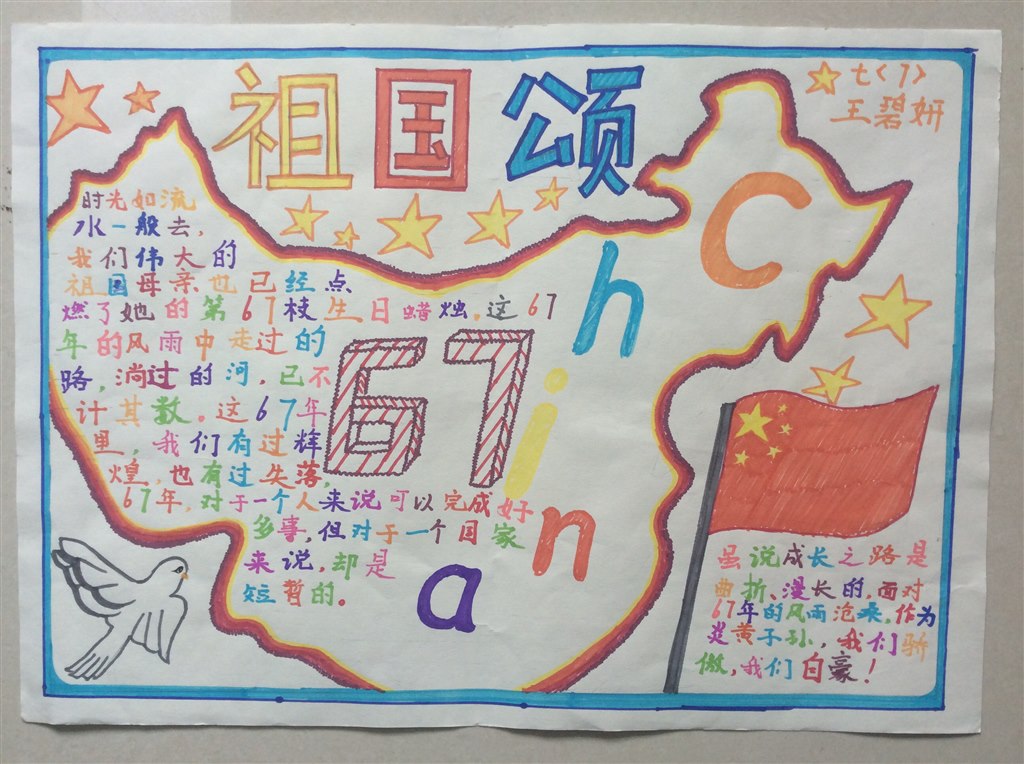 祖国颂
七<7>
王碧妍
时光如流
水一般去,
我们伟大的
祖国母亲也已经点
燃了她的第67枝生日蜡烛。这67
年的风雨中走过的
路,淌过的河,已不
计其数。这67年
里,我们有过辉
煌,也有过失落,
67年,对于一个人来说可以完成好
多事,但对于一个国家
来说,却是
短暂的。
67
C
h
i
n
a
虽说成长之路是
曲折、漫长的,面对
67年的风雨沧桑,作为
炎黄子孙,我们骄
傲,我们自豪!